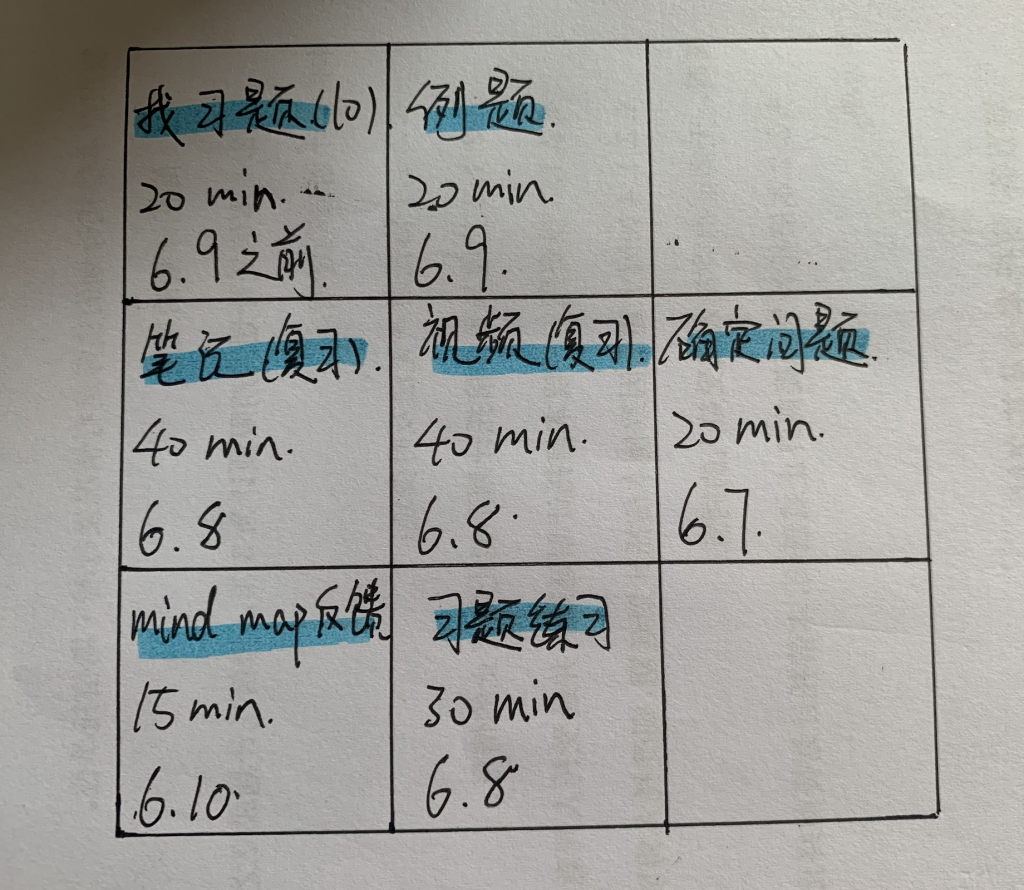 找习题(10).
20 min.
6.9之前.
例题.
20 min.
6.9.
笔记(复习).
40 min.
6.8
视频(复习).
40 min.
6.8.
确定问题.
20 min.
6.7.
mind map反馈
15 min.
6.10.
习题练习
30 min
6.8